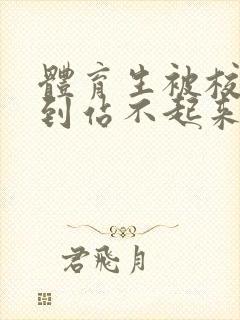 體育生被校
到佔不起來
君飛月